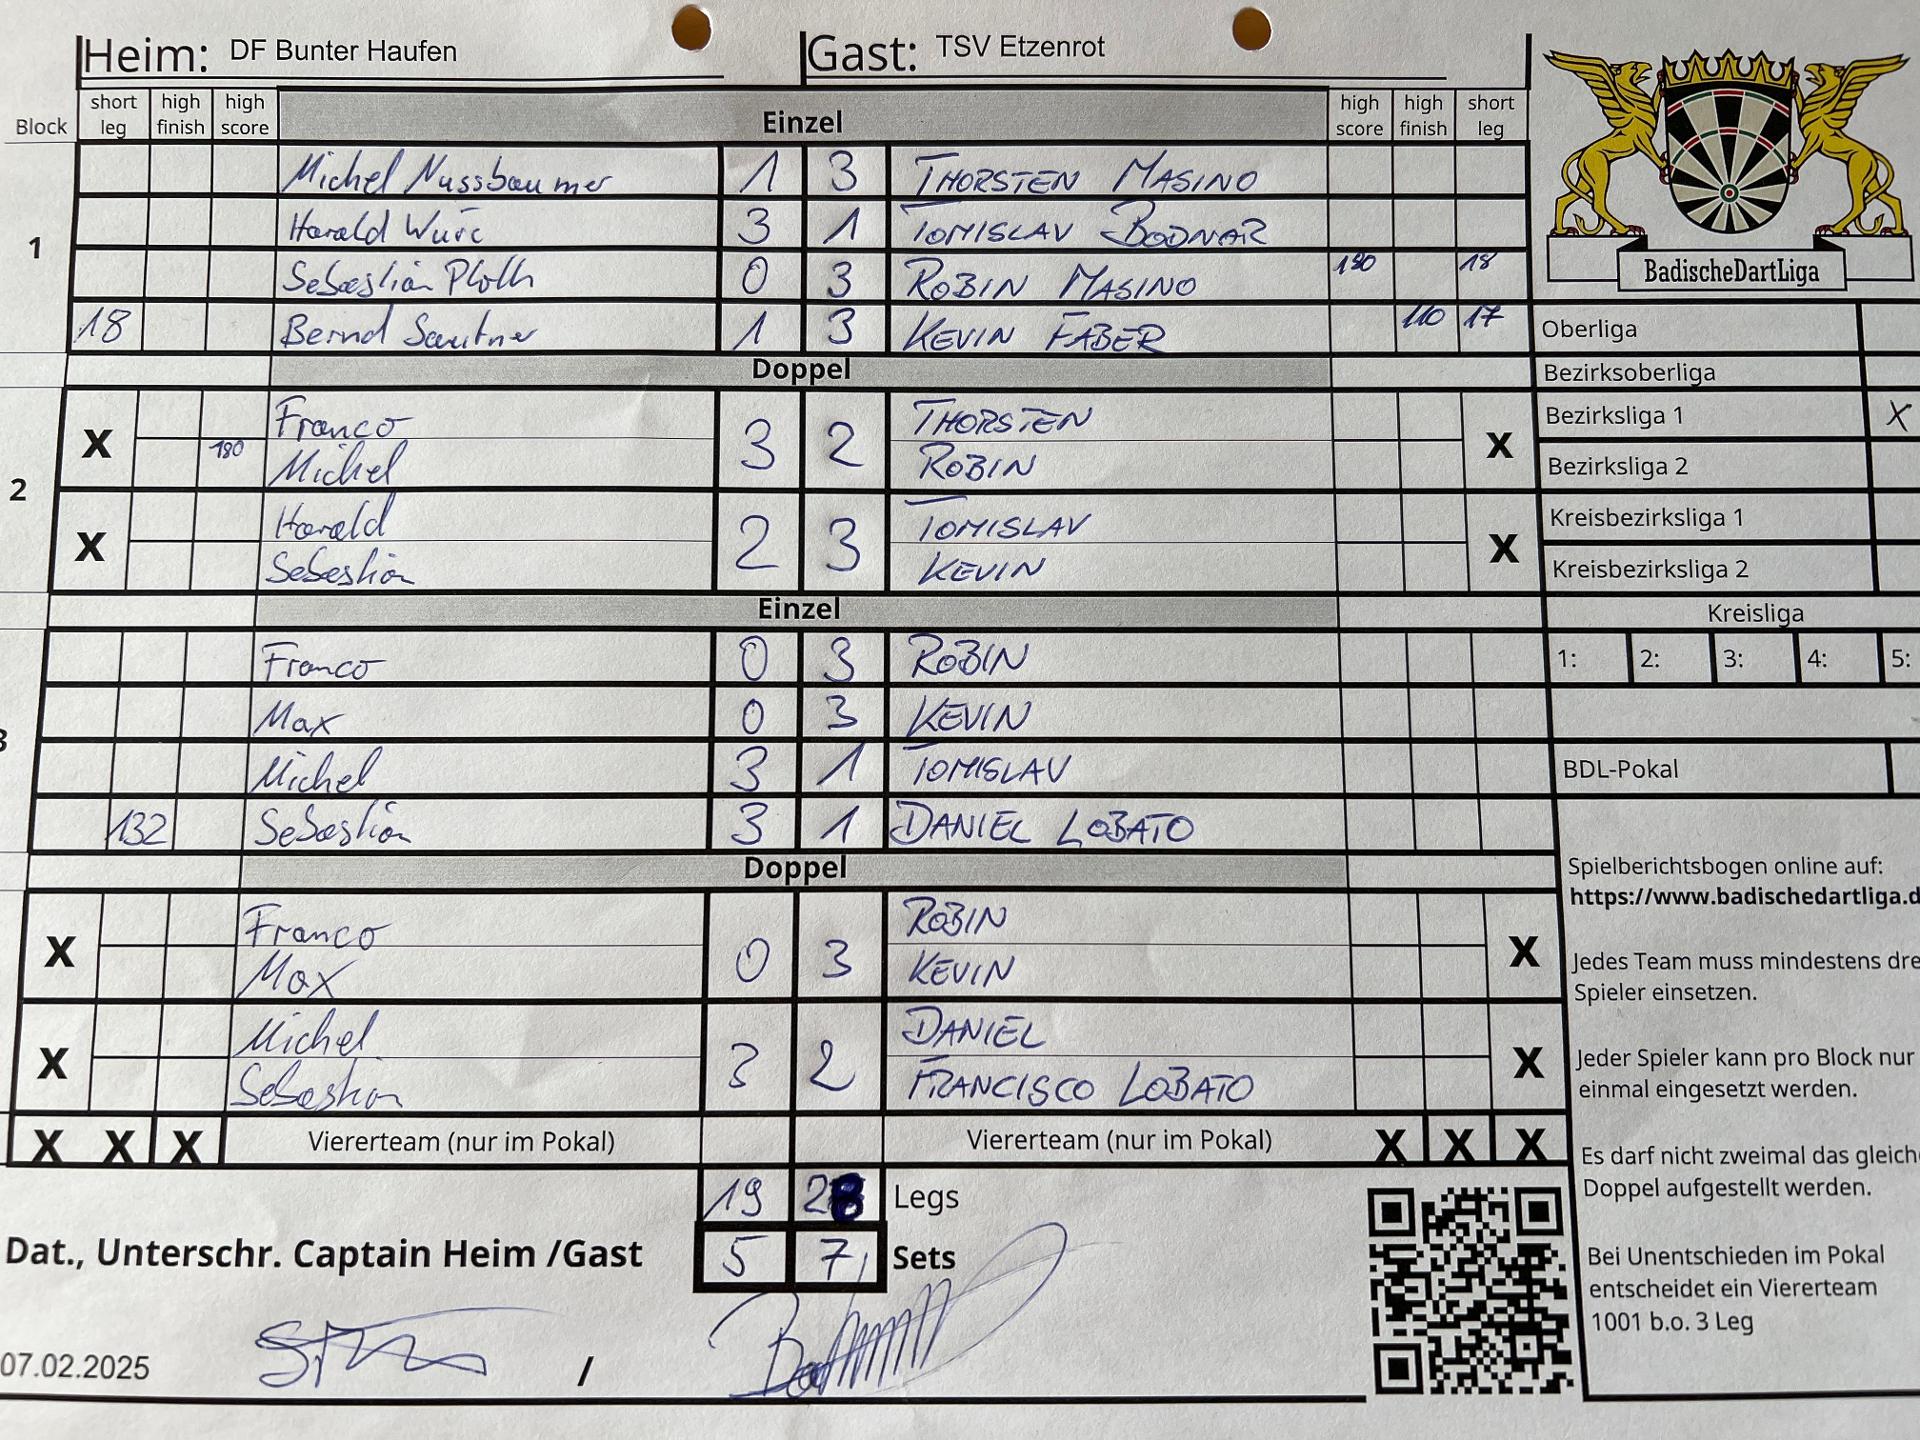 Heim: DF Bunter Haufen Gast: TSV Etzenrot
Block short leg high finish high score Einzel high score high finish short leg
1
Michel Nussbaumer 1 3 THORSTEN MASINO
Harald Wurc 3 1 TOMISLAV BODNAR
Sebastian Ploth 0 3 ROBIN MASINO 180 18
18 Bernd Sautner 1 3 KEVIN FABER 110 17
Doppel
2
X Franco 3 2 THORSTEN X
180 Michel ROBIN
X Harald 2 3 TOMISLAV X
Sebastian KEVIN
Einzel
3
Franco 0 3 ROBIN
Max 0 3 KEVIN
Michel 3 1 TOMISLAV
132 Sebastian 3 1 DANIEL LOBATO
Doppel
X Franco 0 3 ROBIN X
Max KEVIN
X Michel 3 2 DANIEL X
Sebastian FRANCISCO LOBATO
X X X Viererteam (nur im Pokal) Viererteam (nur im Pokal) X X X
19 28 Legs
Dat., Unterschr. Captain Heim /Gast 5 7 Sets
07.02.2025 /
BadischeDartLiga
Oberliga
Bezirksoberliga
Bezirksliga 1 X
Bezirksliga 2
Kreisbezirksliga 1
Kreisbezirksliga 2
Kreisliga
1: 2: 3: 4: 5:
BDL-Pokal
Spielberichtsbogen online auf:
https://www.badischedartliga.d
Jedes Team muss mindestens dre
Spieler einsetzen.
Jeder Spieler kann pro Block nur
einmal eingesetzt werden.
Es darf nicht zweimal das gleich
Doppel aufgestellt werden.
Bei Unentschieden im Pokal
entscheidet ein Viererteam
1001 b.o. 3 Leg